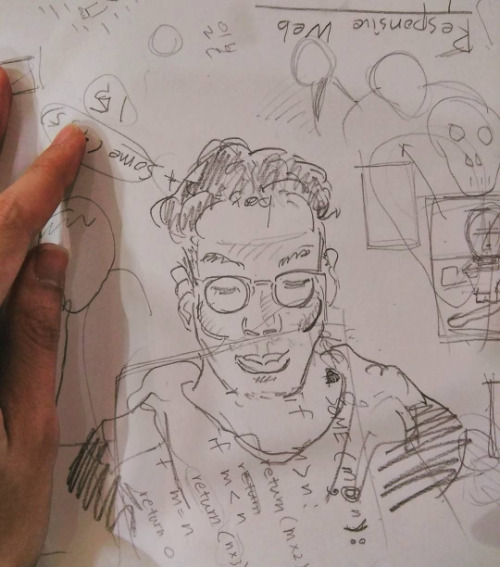 Responsive Web
15
some (
SOME (m, n):
if m > n:
return
return (m x 2)
if m < n
return (n x 3)
if m = n
return 0